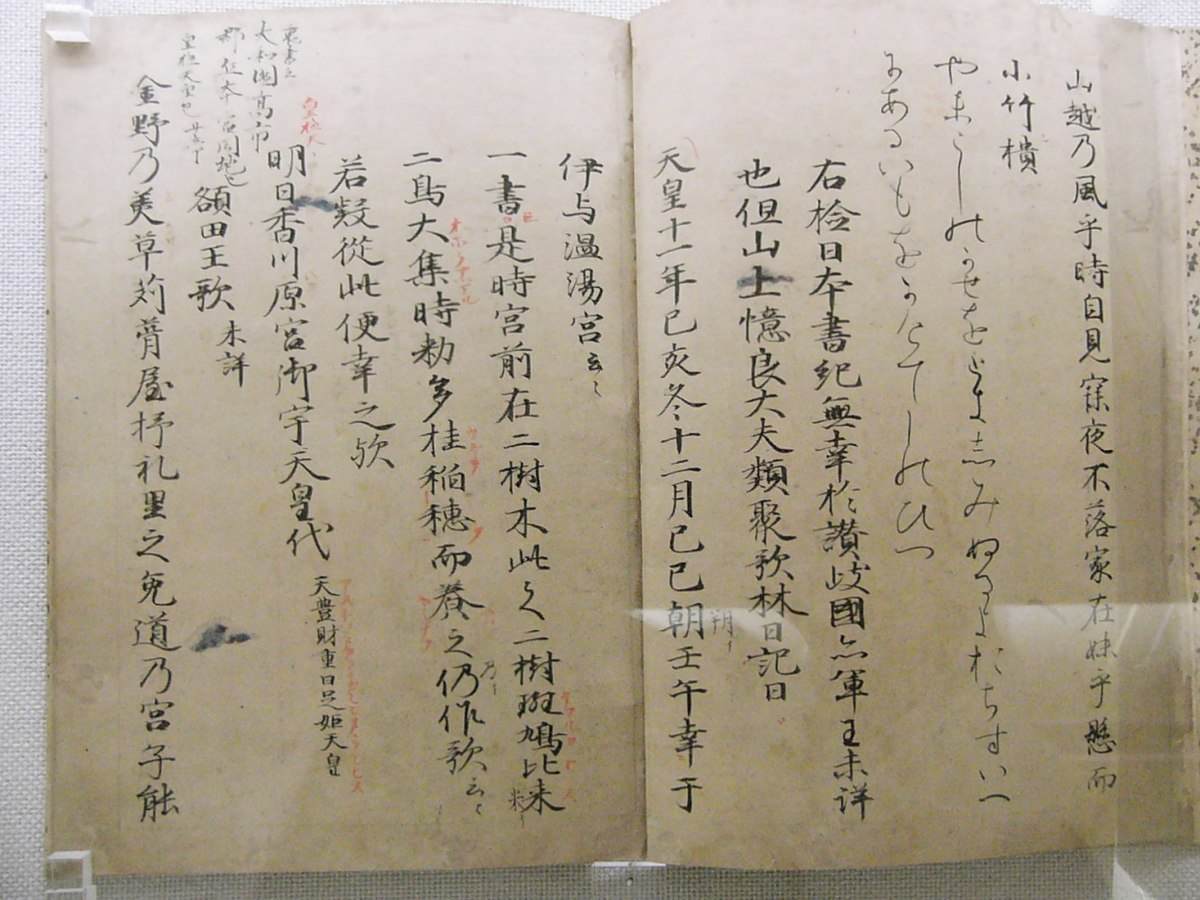 山越乃風乎時自見寐夜不落家在妹乎懸而
小竹樻
やまこしのかせをときしみぬるよおちすいへ
にあるいもをかけてしのひつ
右検日本書紀無幸於讃岐國亦軍王未詳
也但山上憶良大夫類聚歌林曰記曰
天皇十一年己亥冬十二月己巳朝壬午幸于
朔
伊与温湯宮云々
一書是時宮前在二樹木此之二樹斑鳩比米
二鳥大集時勅多桂稲穂而養之仍作歌云々
乃
若疑従此便幸之歟
明日香川原宮御宇天皇代 天豊財重日足姫天皇
皇極天
額田王歌 未詳
大和國高市
金野乃美草苅葺屋杼礼里之兎道乃宮子能